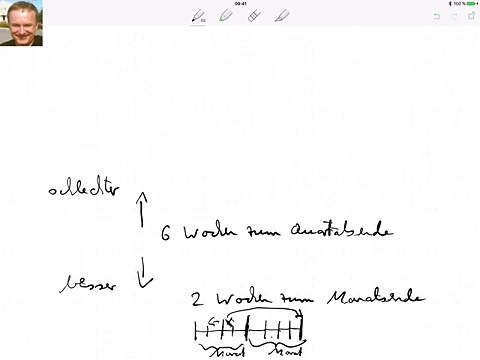 09:41
100 %
schlechter
6 Wochen zum Quartalsende
besser
2 Wochen zum Monatsende
Monat Monat